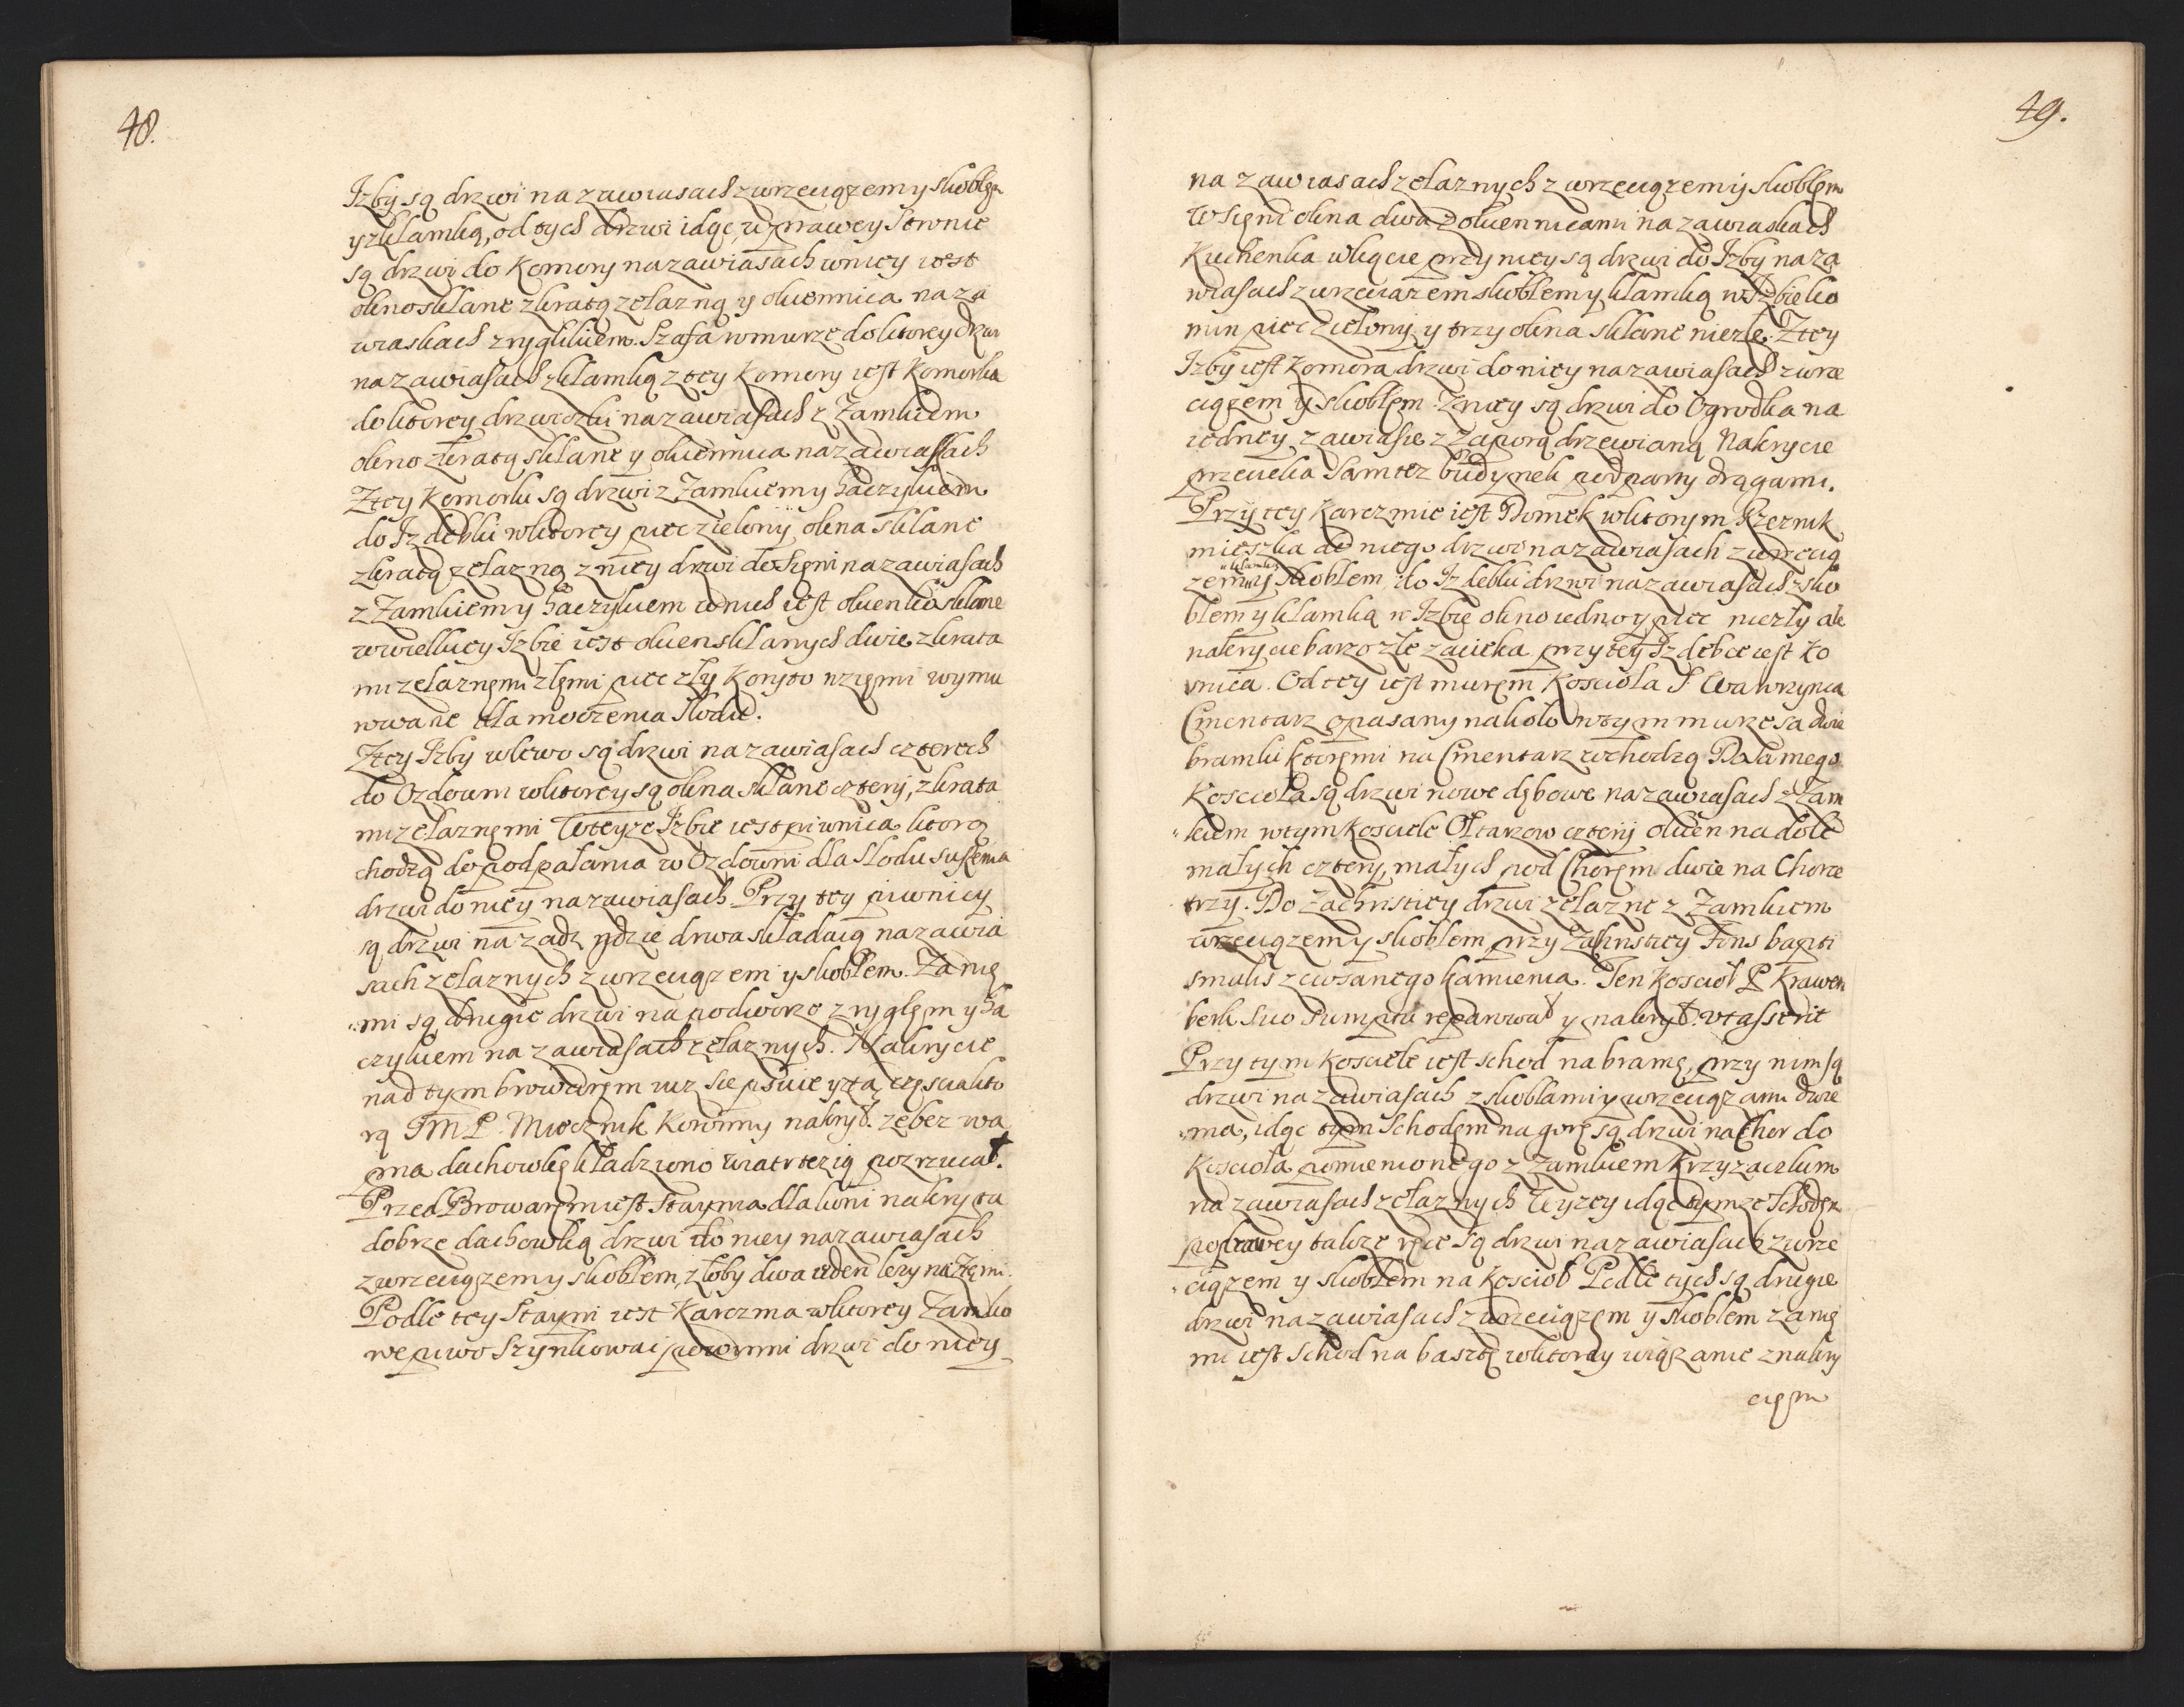 48.
Izby są drzwi na zawiasach z wrzeciązem y skoblem
y z klamką, od tych drzwi idąc w prawey stronie
są drzwi do Komory na zawiasach w niey iest
okno sklane z kratą zelazną y okiennica na za
wiaskach z ryglikiem. Szafa w murze do ktorey drzwi
na zawiasach z klamką z tey Komory iest Komorka
do ktorey drzwiczki na zawiasach z Zamkiem
okno z kratą sklane y okiennica na zawiaskach
Z tey Komorki są drzwi z Zamkiem y haczykiem
do Izdebki w ktorey piec zielony, okna sklane
z kratą zelazną z niey drzwi do sięni na zawiasach
z Zamkiem y haczykiem w nich iest okienko sklane
w wielkiey Izbie iest okien sklanych dwie z krata
mi zelaznęmi złęmi piec zły Koryto w zięmi wymu
rowane dla moczenia słodu.
Z tey Izby w lewo są drzwi na zawiasach czterech
do Ozdowni w ktorey są okna sklane cztery, z krata
mi zelaznęmi W teyze Izbie iest piwnica ktorą
chodzą do podpalania w Ozdowni dla słodu suszenia
drzwi do niey na zawiasach. Przy tey piwnicy
są drzwi na zadz gdzie drwa składaią na zawia
sach zelaznych z wrzeciązem y skoblem. Za nię
mi są drugie drzwi na podworzo z ryglęm y ha
czykiem na zawiasach zelaznych. Nakrycie
nad tym browarem iuz sie psuie y ta częscia kto
rą JMP. Miecznik Koronny nakrył. ze bez wa
pna dachowkę kładziono wiatr tez ią pozrzucał.
Przed Browarem iest staynia dla koni nakryta
dobrze dachowką drzwi do niey na zawiasach
z wrzeciązem y skoblem, złoby dwa ieden lezy na Zięmi.
Podle tey Stayni iest Karczma w ktorey Zamko
we piwo szynkowac powinni drzwi do niey
49.
na zawiasach zelaznych z wrzeciązem y skoblęm
W sięni okna dwa z okiennicami na zawiaskach
Kuchenka w kącie przy niey są drzwi do Izby na za
wiasach z wrzeciązem skoblem y klamką w Izbie ko
min piec zielony y trzy okna sklane niezłe. Z tey
Izby iest Komora drzwi do niey na zawiasach z wrze
ciązem y skoblęm. Z niey są drzwi do Ogrodka na
iedney zawiasie z Zaporą drzewianą Nakrycie
przecieka Sam tez budynek podparty drągami.
Przy tey Karczmie iest Domek w ktorym Rzeznik
mieszka do niego drzwi na zawiasach z wrzecią
klamką
zem y skoblem do Izdebki drzwi na zawiasach z sko
blem y klamką w Izbie okno iedno y piec niezły ale
nakrycie barzo złe zacieka przy tey Izdebce iest Ko
wnica. Od tey iest murem Kosciola S. Wawrzynca
Cmentarz opasany na koło w tym murze są dwie
bramki ktoręmi na Cmentarz wchodzą Do samego
Kosciola są drzwi nowe dębowe na zawiasach z Zam
kiem w tym Kosciele Ołtarzow cztery okien na dole
małych cztery, małych pod Chorem dwie na Chorze
trzy. Do Zachrystiey drzwi zelazne z Zamkiem
wrzeciązem y skoblem przy Zachrystiey Fons bapti
smalis z ciosanego kamienia. Ten Kosciol P. Krawen
berk suo sumptu reparował y nakrył. ut asserit
Przy tym Kosciele iest schod na bramę, przy nim są
drzwi na zawiasach z skoblami y wrzeciązami dwie
ma, idąc tym schodem na gorę są drzwi na Chor do
Kosciola pomienionego z Zamkiem Krzyzackim
na zawiasach zelaznych Wyzey idąc tymze schodęm
po prawey takze ręce są drzwi na zawiasach z wrze
ciązem y skoblem na Kosciol Podle tych są drugie
drzwi na zawiasach z wrzeciązem y skoblem za nię
mi iest schod na basztę w ktorey wiązanie z nakry
cięm